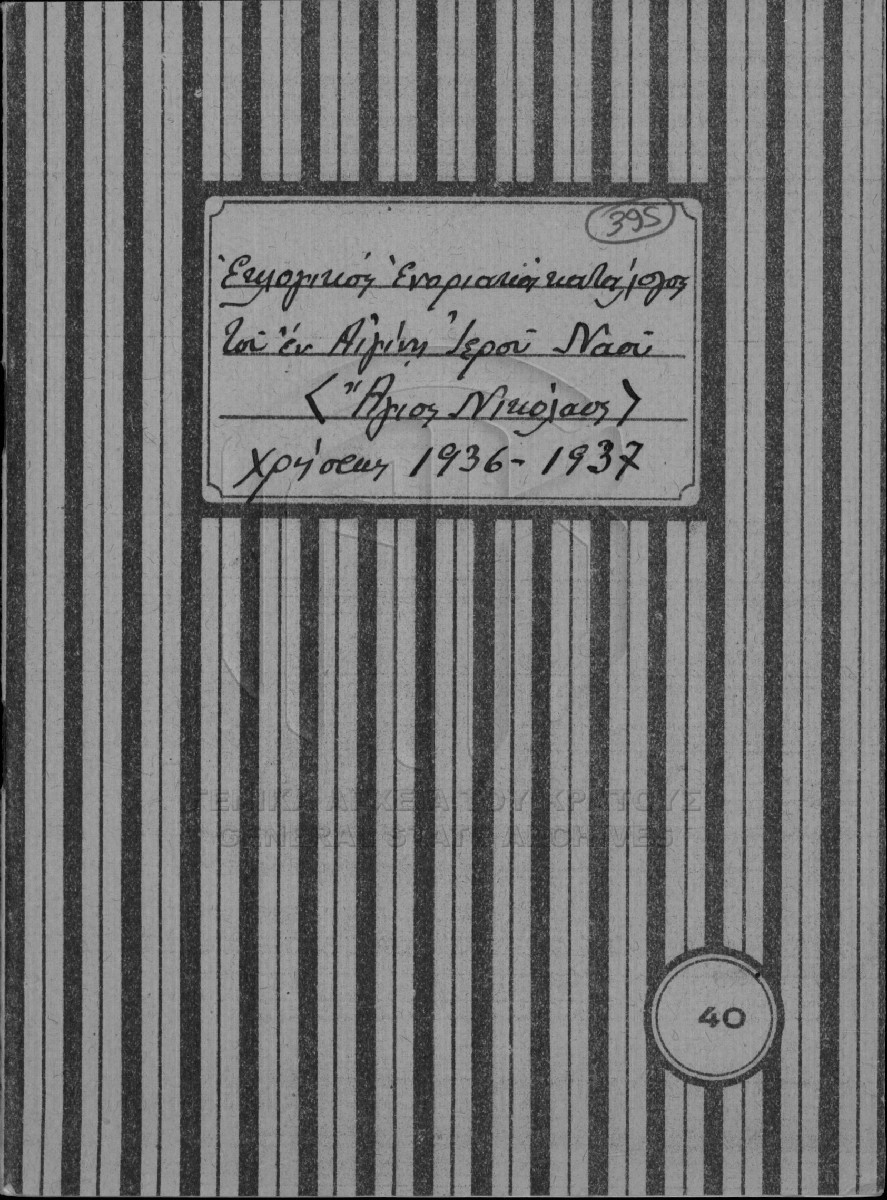 395
Ἐκλογικός Ἐνοριακός κατάλογος
τοῦ ἐν Αἰγίνῃ Ἱεροῦ Ναοῦ
< Ἅγιος Νικόλαος >
Χρήσεως 1936-1937
ΓΕΝΙΚΑ ΑΡΧΕΙΑ ΤΟΥ ΚΡΑΤΟΥΣ
GENERAL STATE ARCHIVES
40